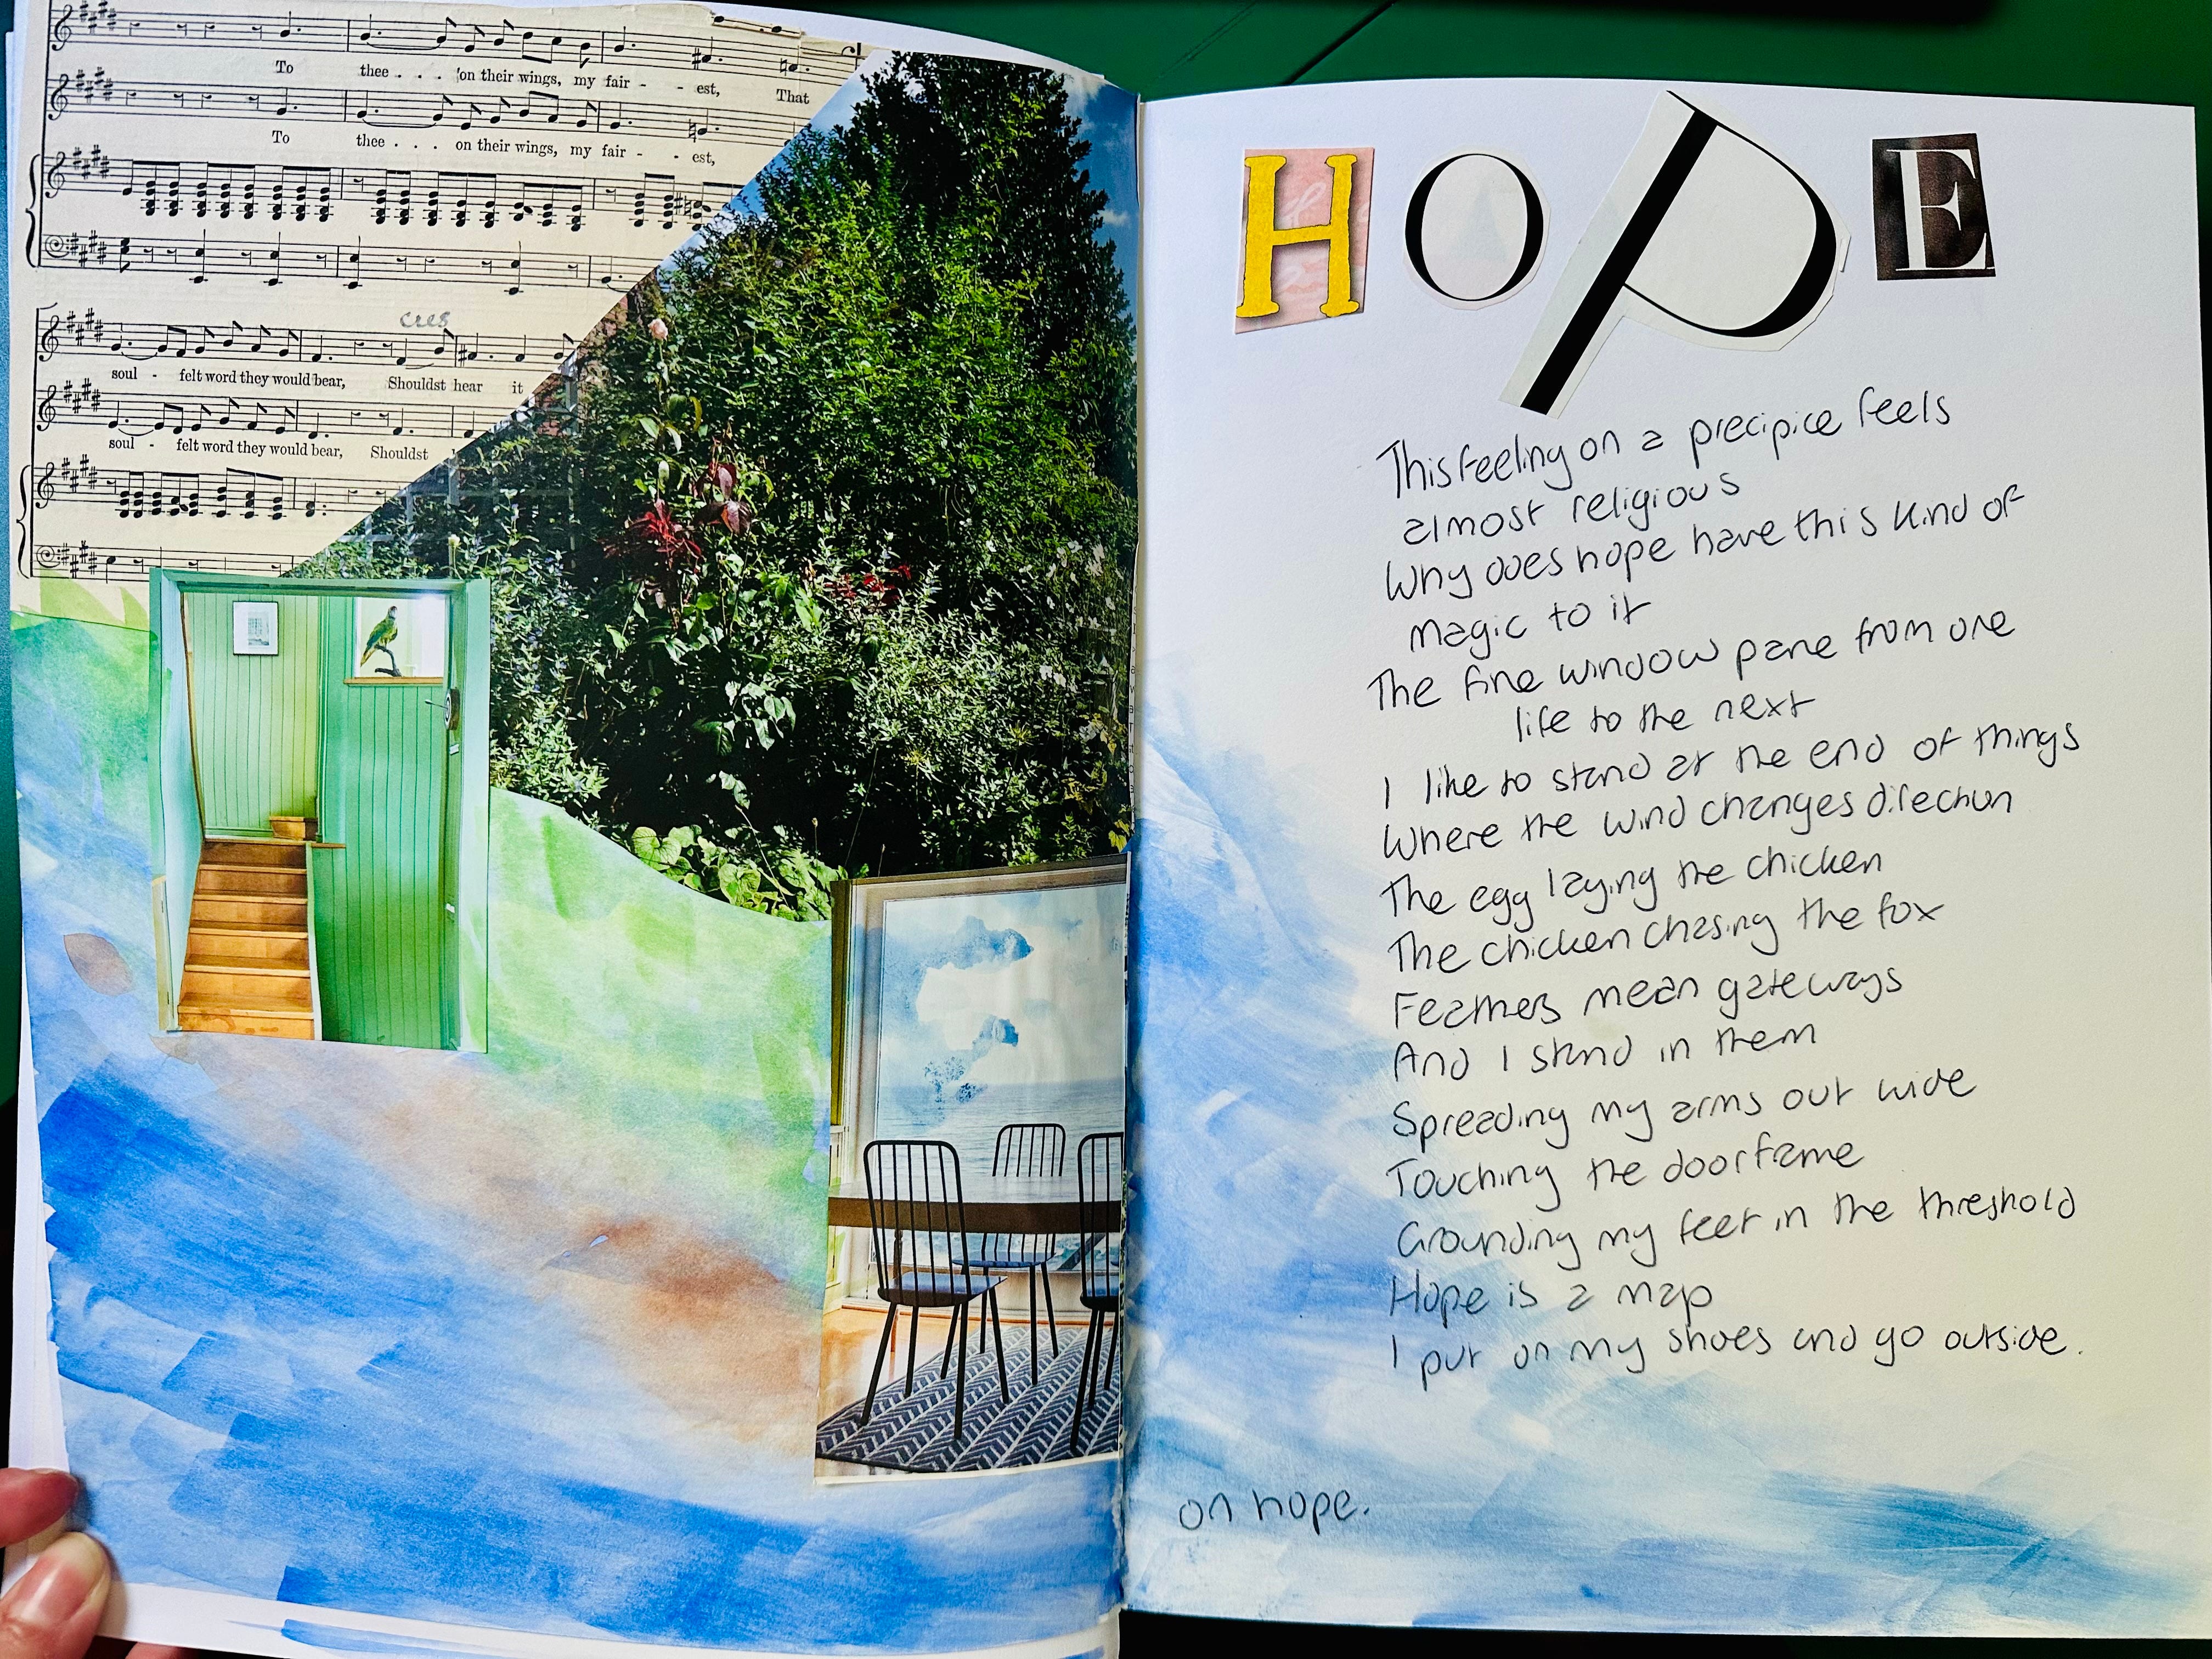 To thee . . . on their wings, my fair - - est, That
To thee . . . on their wings, my fair - - est,
cres
soul - felt word they would bear, Shouldst hear it
soul - felt word they would bear, Shouldst
HOPE
This feeling on a precipice feels
almost religious
Why does hope have this kind of
magic to it
The fine window pane from one
life to the next
I like to stand at the end of things
Where the wind changes direction
The egg laying the chicken
The chicken chasing the fox
Feathers mean gateways
And I stand in them
Spreading my arms out wide
Touching the doorframe
Grounding my feet in the threshold
Hope is a map
I put on my shoes and go outside.
on hope.